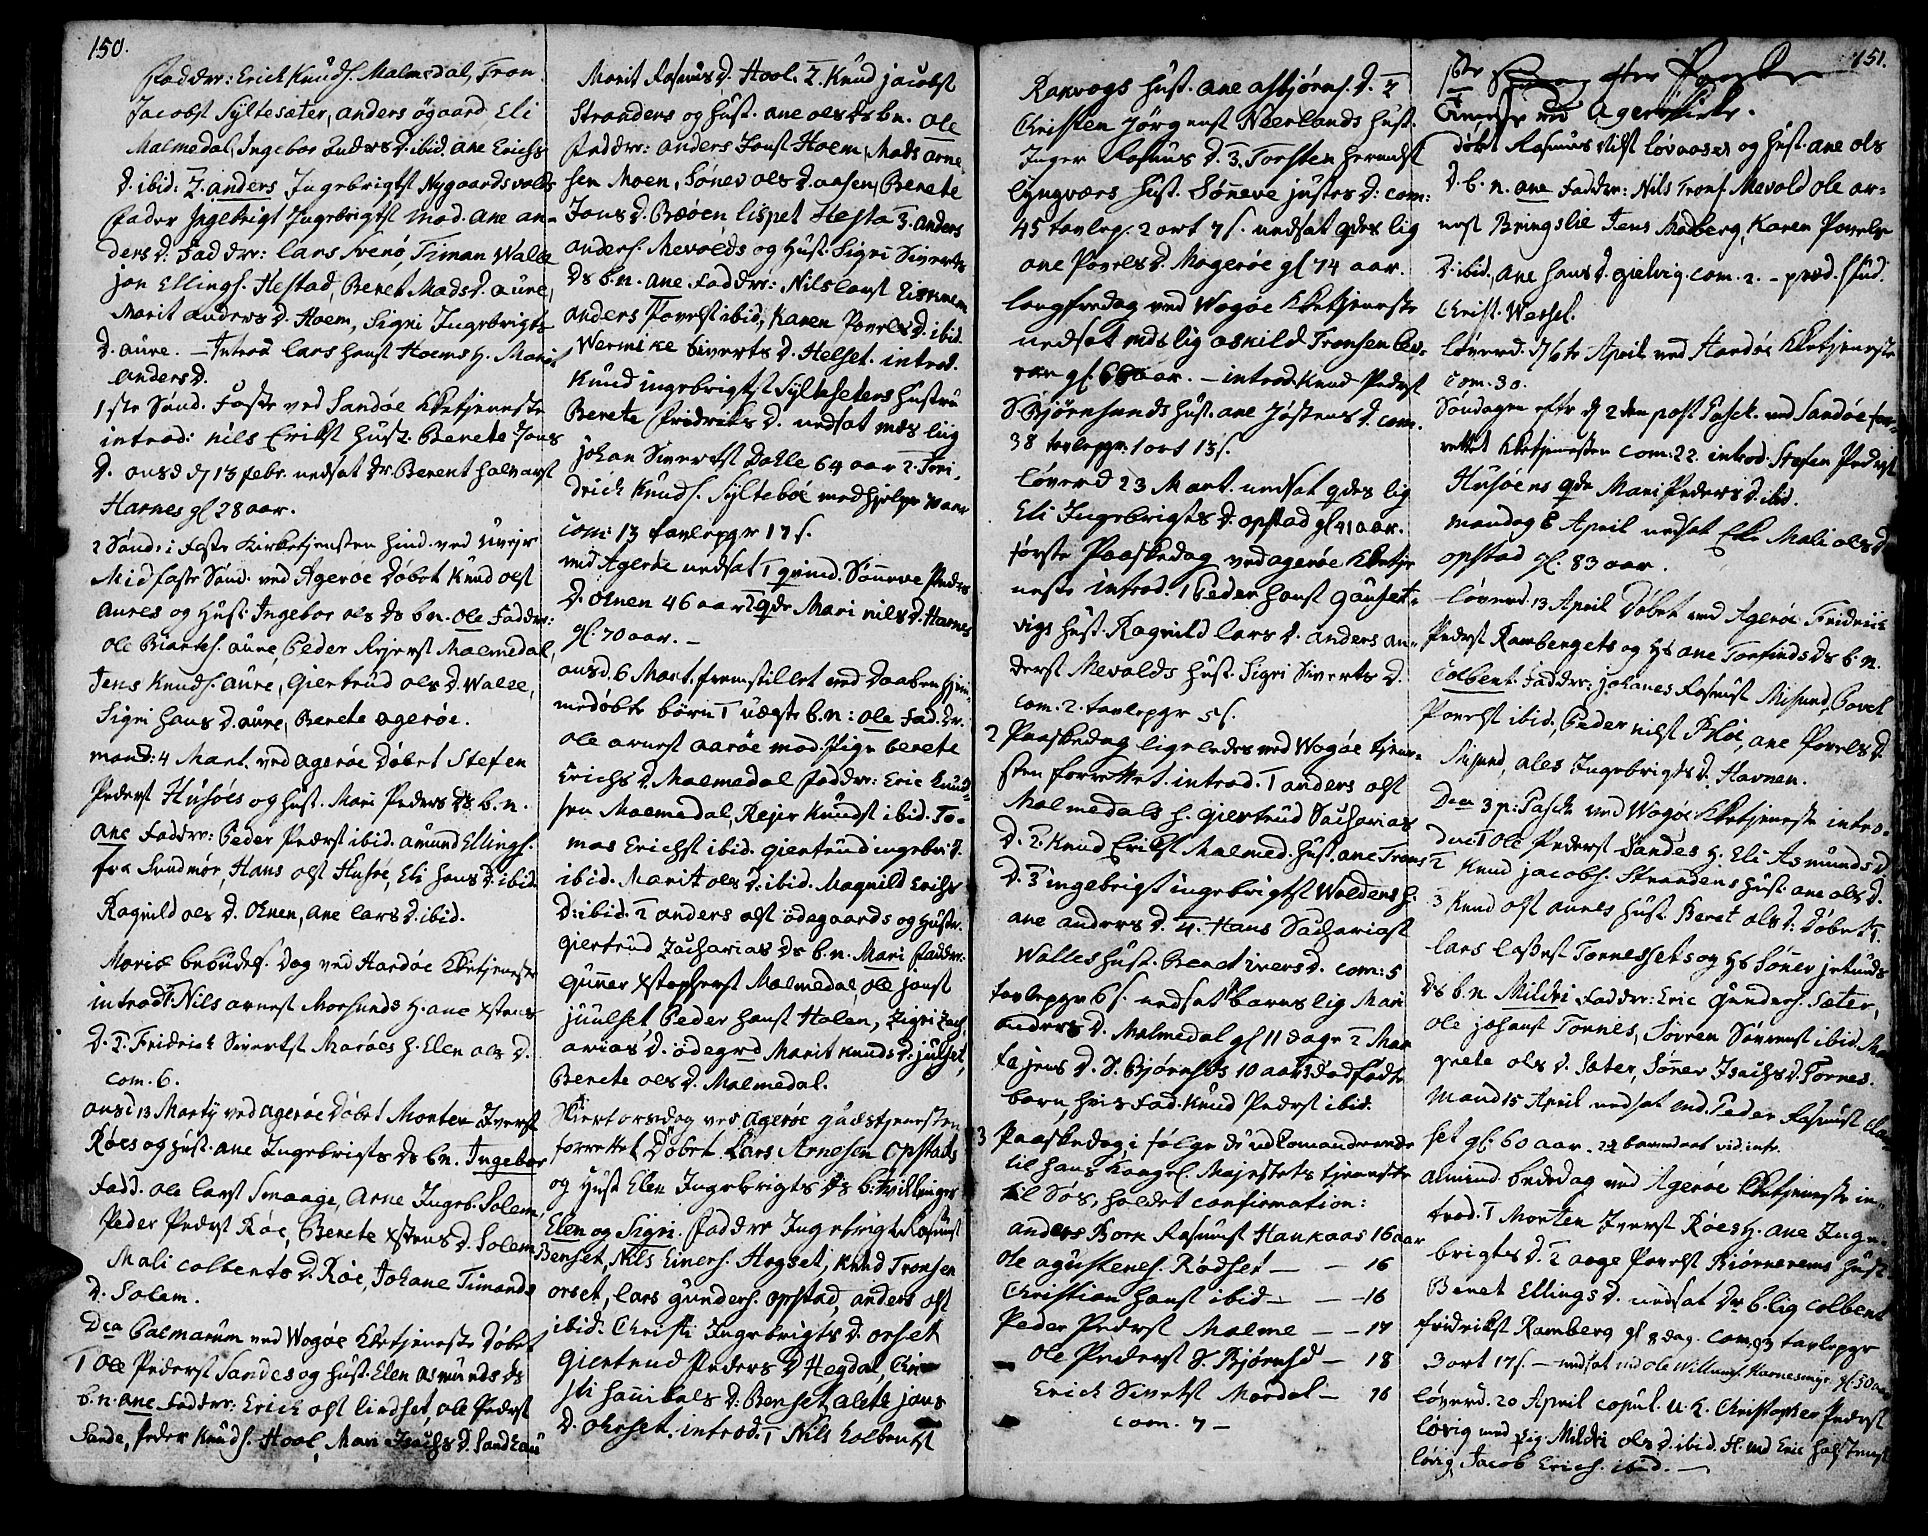 150.
Faddr: Erich Knuds. Malmedal, Tron
Jacobs Syltesæter, anders ögaard Eli
Malmedal, Ingebor Anders D. ibid. ane Erichs
D. ibid: 2. anders Ingebrigts Nygaards volds
Fader Ingebrigt Ingebrigts mod. ane an-
ders D. Faddr: lars Svenö, Timan Walle
jon Ellings. Hestad, Beret Mads D. aure,
Marit anders D. Hoem, Signi Ingebrigts
D. aure. – Introd lars hans Hoems H. Marit
anders D.
1ste Sönd. Faste ved Sandöe Kketjeneste
introd: nils Eriks Hust. Berete Jons
D. onsd d 13 febr. nedsat dr. Berent halvors
Harnes gl 28 aar.
2 Sönd: i Faste Kirketjensten hind. ved Uvejr
Midfaste Sönd. ved Ageröe döbet Knud ols
aures og Hust. Ingebor ols Ds b.n. Ole Faddr:
ole Biarth. aure, Peder Rejers Malmedal,
Jens Knuds. aure, Giertrud ols D. Walle,
Sigri hans D. aure, Berete ageröe.
mand: 4 Mart. ved ageröe Döbet Stefen
Peders Husöes og Hust. Mari Peders Ds b.n.
ane Faddr: Peder Peders ibid. amund Ellings.
fra Sundmör, Hans ols Husöe, Eli hans D. ibid
Ragnild ols D. Ohnen, ane lars D. ibid.
Mariæ bebudels. dag ved Hardöe Kketjeneste
introd 1. Nils arnes Morsunds H. ane Xstens
D. 2. Fridrich Siverts Maröes H. Elen ols D.
com. 6.
onsd 13 Marty ved ageröe Döbet Morten Ivers
Röes og Hust. ane Ingebrigts Ds b.n. Ingebor
Fadd. ole lars Smaage, Arne Ingeb. Solem,
Peder Peders Röe, Berete Xstens D. Solem
Mali colbents D. Röe, Johane Timands
D. Solem.
Dca Palmarum ved Wogöe Kketjeneste Döbet
1 Ole Peders Sandes og Hust. Elen Asmunds Ds
b.n. ane Faddr: Erich ols lindset, ole Peders
Sande, Peder Knuds. Hool, Mari Isachs D. Sandhau
Marit Rasmus D. Hool. 2 Knud jacobs
Stranders og Hust. ane ols Ds b.n. Ole
Faddr: anders Jons Hoem, Mads arne
sen Moen, Sönev ols D. aasen, Berete
Jons D. Bröen lispet Hesta 3. anders
anders. Mevolds og Hust. Sigri Siverts
Ds b.n. ane Faddr: Nils lars
anders Povels ibid, Karen Povels D. ibid.
Wermike Siverts D. Helset. introd.
Knud ingebrigts Syltesæters Hustru
Berete Fredriks D. nedsat mds liig
johan Siverts Dahle 64 aar 2.
drich Knuds. Sylteböe
com: 13 tavlepgr 17 s.
ved Ageröe nedsat 1 qvind. Söneve Peders
D. Ohnen 46 aar 2 qde Mari nils D. Harnes
gl. 70 aar. –
onsd. 6 Mart. fremstillet ved Daaben hjem
medöbte börn 1 uægte b.n: Ole Fad. dr.
ole arnes aaröe mod. Pige berete
Erichs D. Malmedal Faddr: Eric Knud
sen Malmedal, Rejer Knuds ibid. To-
mas Erichs ibid. Giertrud ingebri: D.
ibid. Marit ols D. ibid. Magnild Erichs
D: ibid. 2 anders ols ödegaards og Hustr.
giertrud Zacharias Ds b.n. Mari Faddr:
Gunner Xstophers Malmedal, ole jons
juulset Peder hans Holen, Zigri Zach
arias D. ödegrd Marit Knuds D. julset,
Berete ols D. Malmedal.
Skiertorsdag ved Ageröe gudstjenesten
forrettet Döbet. Lars Arnesen Opstads
og Hust Elen Ingebrigts Ds b. tvillinger
Elen og Sigri. Faddr Ingebrigt Rasmus
Benset, Nils Einers. Hogset, Knud Tronsen
orset, lars gunders. opstad, anders ols
ibid. Christi Ingebrigts D. orset
Giertrud Peders D Hegdal,
sti hanibals D: Benset alete jons
D. Ohrset. introd. 1 Nils Colbents
Rakvogs Hust. ane asbjörns. D. 2
Christen Jörgens Neerlands Hust.
Inger Rasmus D. 3. Torsten
Lyngværs Hust. Söneve justes D. com:
45 tavlep. 2 ort 7 s. nedsat qdes lig
ane Povels D. Mageröe gl 74 aar.
langfredag ved Wogöe Kketjeneste
nedsat mds lig askild Tronsen
gl. 66 aar. – introd. Knud Peders
S. Björnsunds Hust. ane Jöstens D. com.
38 tavlepgr. 1 ort 13 s.
löverd 23 Mart. nedsat qdes lig
Eli Ingebrigts D. opstad gl 41 aar.
förste Paaskedag ved ageröe Kketje
neste introd. 1 Peder hans Gauset-
vigs Hust. Ragnild lars D. anders an-
ders Mevolds Hust Sigri Siverts D.
com. 2. tavlepgr 5 s.
2 Paaskedag ligeledes ved Wogöe tjene-
sten forrettet. introd. 1 anders ols
Malmedals H. giertrud Sacharias
D. 2. Knud Eriks Malmed. Hust. ane Trons
D. 3 ingebrigt ingebrigts Woldens H.
ane anders D. 4. Hans Sacharias
Walles Hust. Beret ivers D. com: 5
tavlepgr 6 s. nedsat 1 barns lig Mari
Anders D. Malmedal gl 11 dage 2 Mar
ta jens D. S. Björnsds 10 aar 3 dödfödte
barn, hvis Fad. Knud Peders ibid.
3 Paaskedag i fölge de udkomanderende
til hans Kongel. Majestets tjeneste
til Sös, holdet confirmation:
anders Born Rasmus Hankaas 16 aar
Ole agustenes. Rödset – – 16
Christian hans ibid – – 16
Peder Peders Malme – – 17
Ole Peders S. Björnsd – 18
Erick Sivets Mordal – 16
com. 7 –
151.
1ste Söndag efter Paaske
tieneste ved Ageröekirke.
döbt Rasmus nils lövaases og Hust. ane ols
D. b.n. ane Faddr: Nils Trons. Mevold ole ar-
nes Bringslie Jens Madberg, Karen Povels
D. ibid, ane hans D. gielvig. com. 2. – præd. Stud.
Christ. Wessel.
löverd. d 6te April ved Hardöe Kketjeneste
com. 30.
Söndagen efter d 2den post Pasch. ved Sandöe for-
rettet Kketjenesten com: 22 introd. Stefen Peders
Husöens qde Mari Peders D. ibid.
mandag 8 April nedsat Eke Mali ols D
opstad gl. 83 aar.
– löverd. 13 April Döbet ved Ageröe Fridrich
Peders Rambergets og H ane Torfinds Ds b.n.
Colbent Faddr: johanes Rasmus Misund, Povel
Povels ibid, Peder nils Röe, ane Povels D.
Misund, ales Ingebrigts D. Havnen.
Dca 3 p: Pasch ved Wogöe Kketjeneste intro-
duc 1 Ole Peders Sandes H. Eli Asmunds D.
2 Knud jacobs. Strandens Hust. ane ols D.
3 Knud ols aures Hust Beret ols D: Döbet 1.
lars lasses Tornesets og H Söner jetunds
Ds b.n. Mildri Faddr: Eric Gunders. Sæter,
ole johans Tornes, Sörren Sörens ibid. Ma
grete ols D. Sæter, Söner Isachs D. Tornes.
Mand 15 April nedsat md. Peder Rasmus
set gl. 60 aar. 2
almind. bededag ved Ageröe Kketjeneste in-
trod. 1 Morten Ivers Röes H. ane Inge-
brigts D. 2 aage Povels Biörnerems Hust.
Beret Ellings D. nedsat dr b. lig colbent
fridriks Ramberg gl 8 dag. com. 93 tavlepgr
3 ort 17 s. – nedsat md ole Willums Harnesmyr. gl. 50 aar
löverd. 20 April copul. u.k. Christopher Peders
lövig med pig. Mildri ols D. ibid.
lövig, Jacob Erics. ibid. –